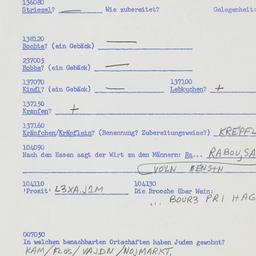 136080
Striezel? — Wie zubereitet? Gelegenheit:
138120
Bochte? (ein Gebäck) —
237005
Bobbe? (ein Gebäck) —
137070 137100
Kindl? (ein Gebäck) — Lebkuchen? +
137150
Krapfen? +
137160
Kräpfchen/Kräpflein? (Benennung? Zubereitungsweise?) KREPFL
104090
Nach dem Essen sagt der Wirt zu den Männern: Ra... RABOUSA
BENSTN
104110 104130
'Prosit' L3XA.J2M Die Brooche über Wein:
... BOUR3 PRI HAG
007030
In welchen benachbarten Ortschaften haben Juden gewohnt?
KAM/FLOS/VAJDN/NOJMARKT,